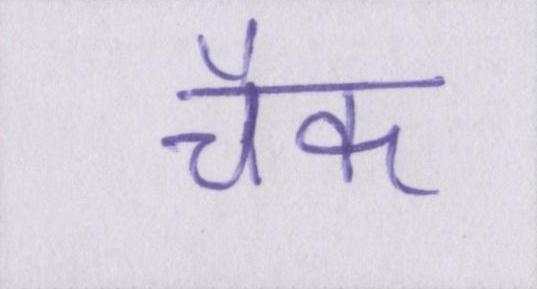 चैक